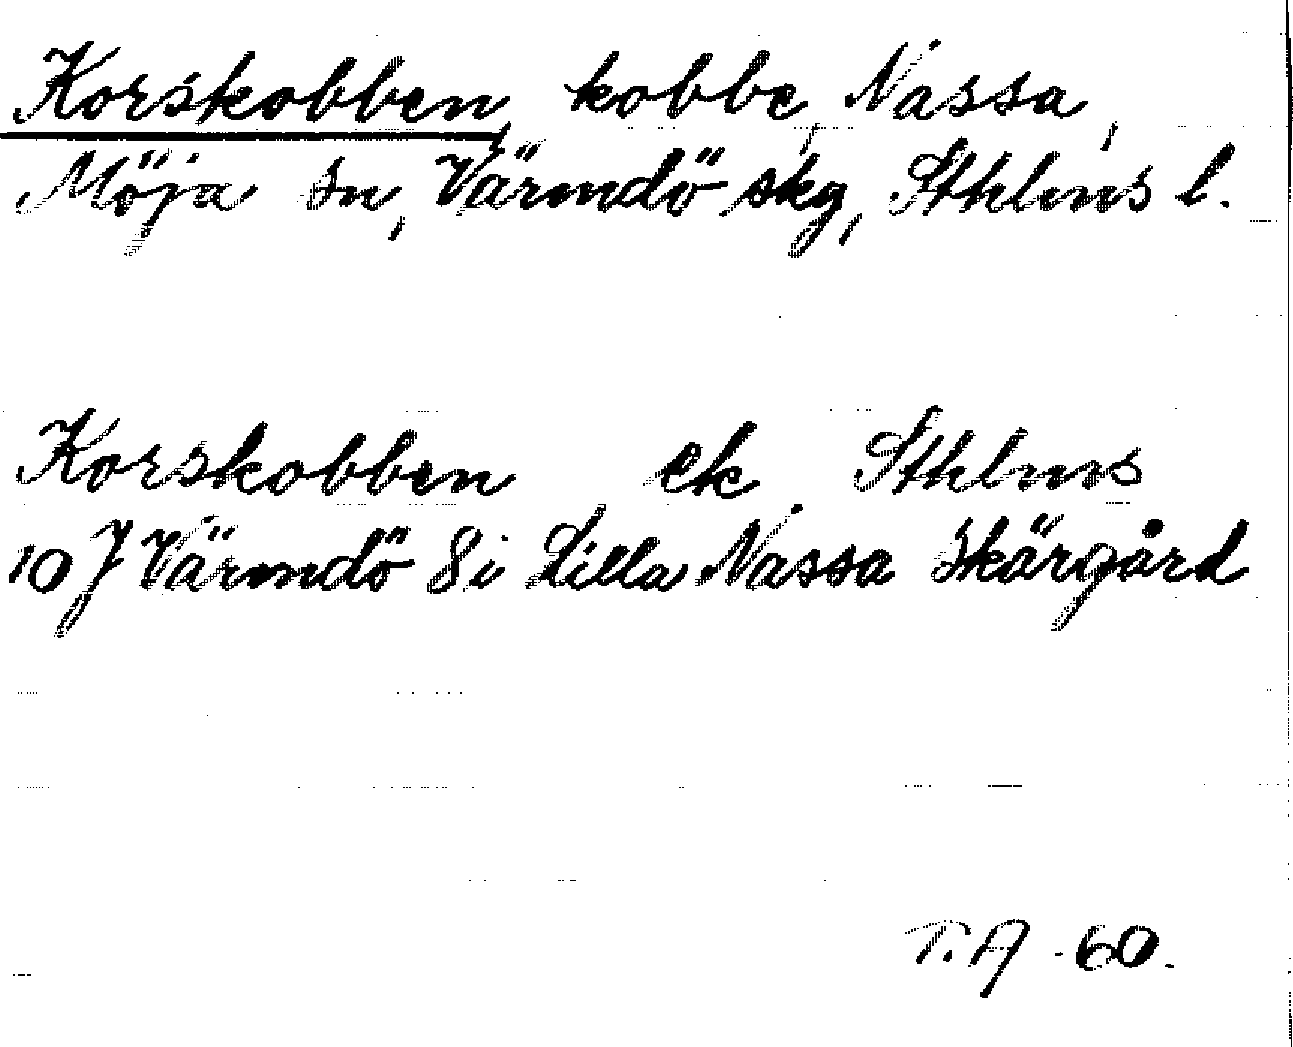 Korskobben, kobbe, Nassa,
Möja sn, Värmdö skg, Sthlms l.
Korskobben ek Sthlms
10 J Värmdö 8i Lilla Nassa Skärgård
T.A -60.